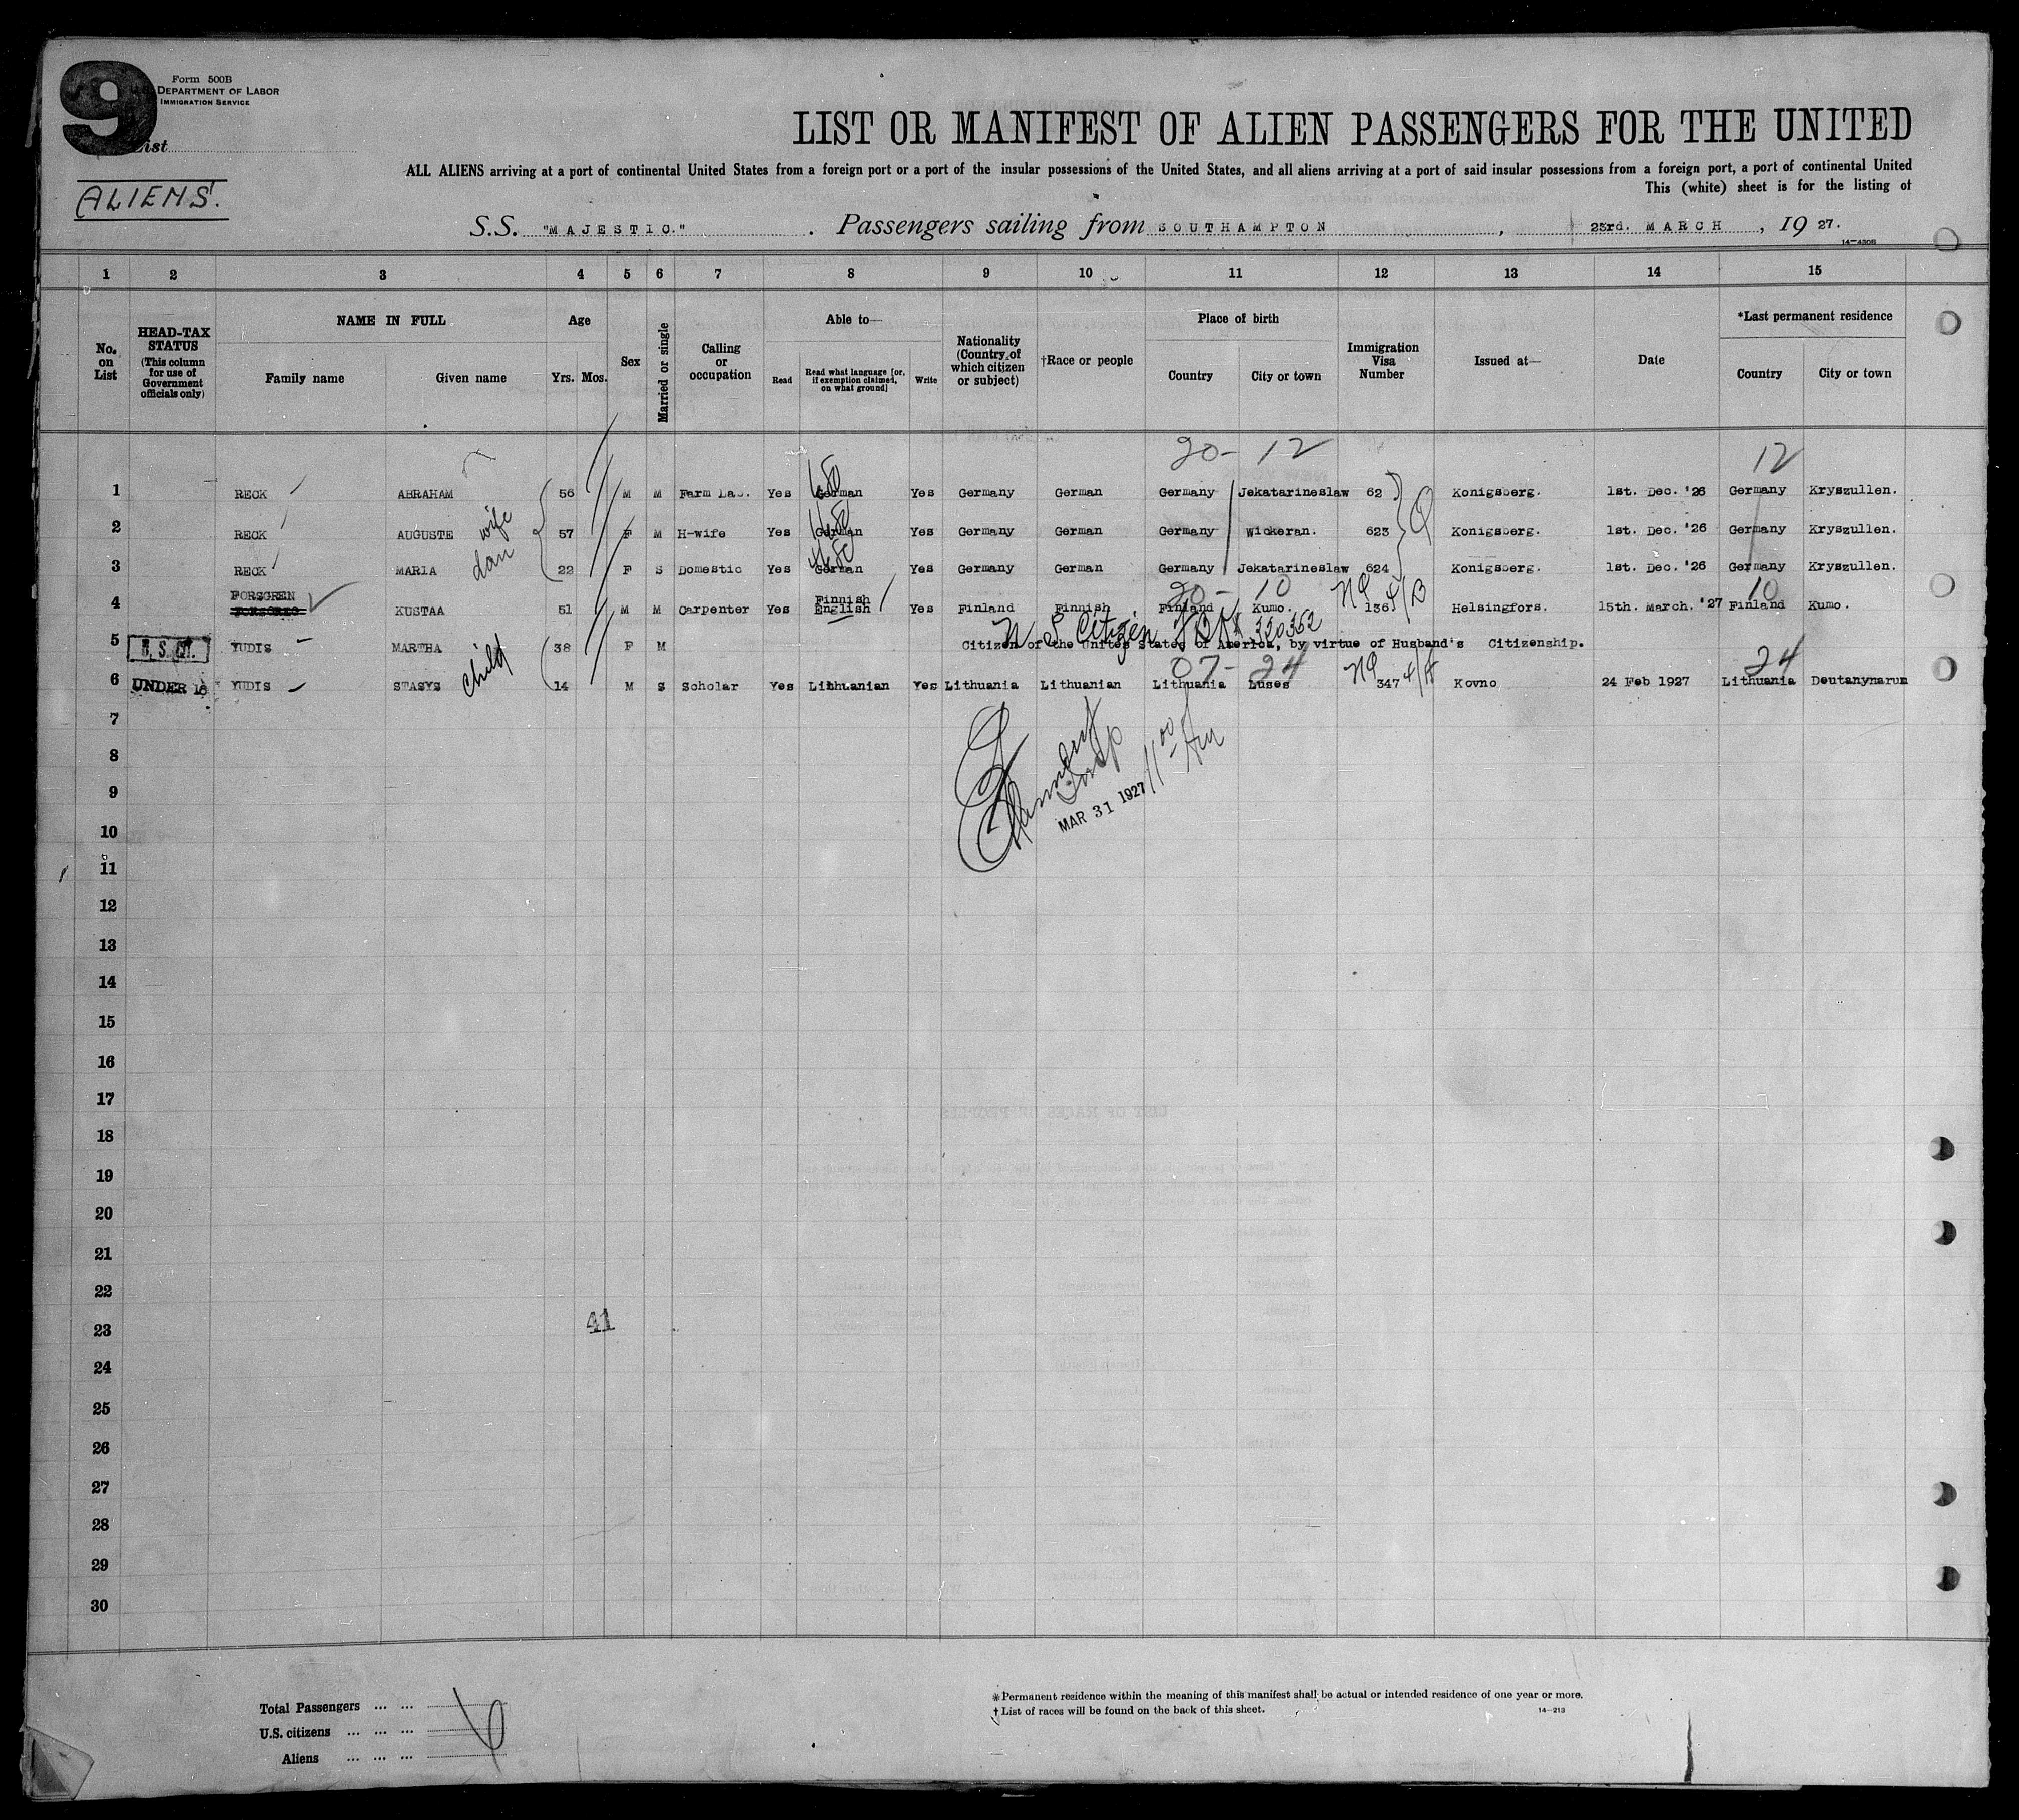 9
Form 500B
DEPARTMENT OF LABOR
IMMIGRATION SERVICE
List
ALIENS.
LIST OR MANIFEST OF ALIEN PASSENGERS FOR THE UNITED
ALL ALIENS arriving at a port of continental United States from a foreign port or a port of the insular possessions of the United States, and all aliens arriving at a port of said insular possessions from a foreign port, a port of continental United
This (white) sheet is for the listing of
S.S. "MAJESTIC." Passengers sailing from SOUTHAMPTON, 23rd. MARCH, 19 27.
14—430B
1 2 3 4 5 6 7 8 9 10 11 12 13 14 15
No. on List
HEAD-TAX STATUS (This column for use of Government officials only)
NAME IN FULL
Family name Given name
Age
Yrs. Mos.
Sex
Married or single
Calling or occupation
Able to—
Read
Read what language [or, if exemption claimed, on what ground]
Write
Nationality (Country of which citizen or subject)
†Race or people
Place of birth
Country City or town
Immigration Visa Number
Issued at—
Date
*Last permanent residence
Country City or town
20- 12 12
1 RECK ABRAHAM 56 M M Farm Lab. Yes German Yes Germany German Germany Jekatarineslaw 62 Konigsberg. 1st. Dec. '26 Germany Kryszullen.
2 RECK AUGUSTE wife 57 F M H-wife Yes German Yes Germany German Germany Wickeran. 623 Q Konigsberg. 1st. Dec. '26 Germany Kryszullen.
3 RECK MARIA dau 22 F S Domestic Yes German Yes Germany German Germany Jekatarineslaw 624 Konigsberg. 1st. Dec. '26 Germany Kryszullen.
20- 10 10
FORSGREN Finnish
4 KUSTAA 51 M M Carpenter Yes English Yes Finland Finnish Finland Kumo. NQ 136 4/B Helsingfors. 15th. March. '27 Finland Kumo.
U S Citizen 320362
5 U.S. CIT. YUDIS MARTHA 38 F M Citizen of the Unites States of America, by virtue of Husband's Citizenship.
07- 24 24
6 UNDER 16 YUDIS STASYS child 14 M S Scholar Yes Lithuanian Yes Lithuania Lithuanian Lithuania Luses NQ 347 Kovno 24 Feb 1927 Lithuania Deutanynarum
7
8
Insp 11 00 Am
9
MAR 31 1927
10
11
12
13
14
15
16
17
18
19
20
21
22
23 41
24
25
26
27
28
29
30
Total Passengers ... ... 6
U.S. citizens ... ... ...
Aliens ... ... ...
*Permanent residence within the meaning of this manifest shall be actual or intended residence of one year or more.
† List of races will be found on the back of this sheet.
14—213